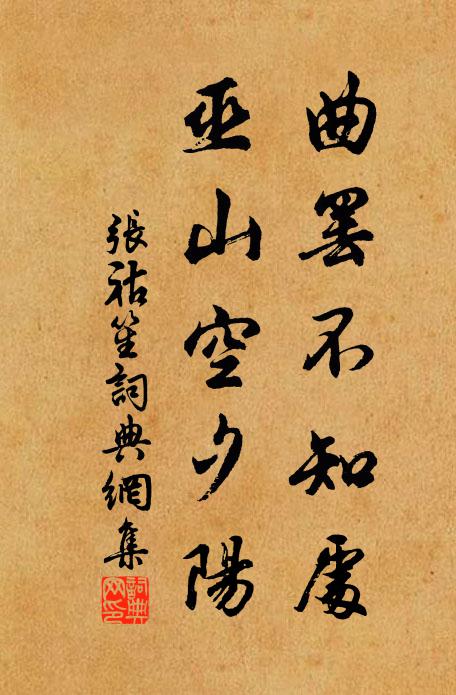 曲罷不知處
巫山空夕陽
張祜笙詞典網集
詞典網印